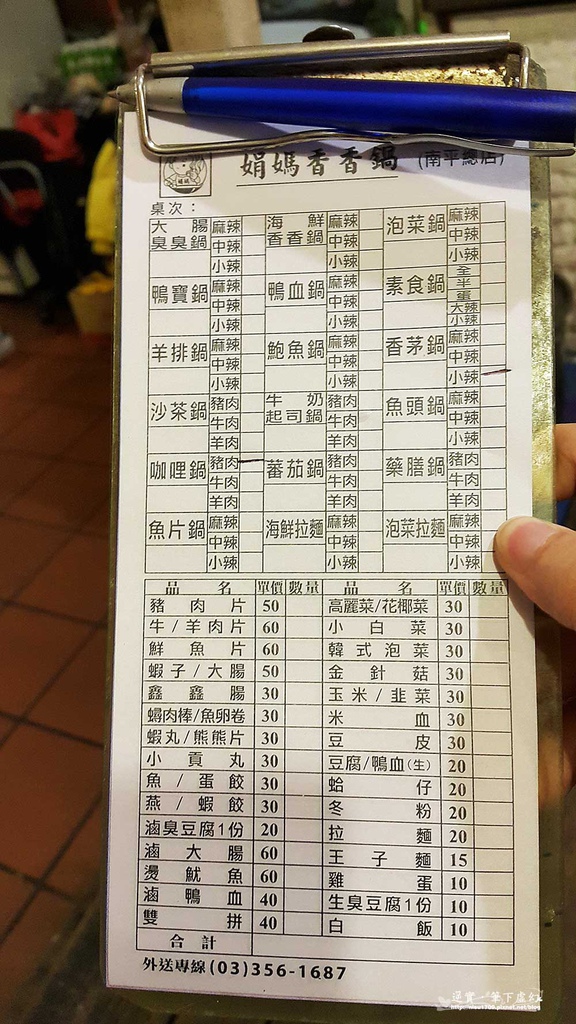 娟媽香香鍋 (南平總店)
桌次：
大腸臭臭鍋 麻辣 中辣 小辣 海鮮香香鍋 麻辣 中辣 小辣 泡菜鍋 麻辣 中辣 小辣
鴨寶鍋 麻辣 中辣 小辣 鴨血鍋 麻辣 中辣 小辣 素食鍋 全 半 蛋 大辣 小辣
羊排鍋 麻辣 中辣 小辣 鮑魚鍋 麻辣 中辣 小辣 香茅鍋 麻辣 中辣 小辣
沙茶鍋 豬肉 牛肉 羊肉 牛奶起司鍋 豬肉 牛肉 羊肉 魚頭鍋 麻辣 中辣 小辣
咖哩鍋 豬肉 牛肉 羊肉 蕃茄鍋 豬肉 牛肉 羊肉 藥膳鍋 豬肉 牛肉 羊肉
魚片鍋 麻辣 中辣 小辣 海鮮拉麵 麻辣 中辣 小辣 泡菜拉麵 麻辣 中辣 小辣
品名 單價 數量 品名 單價 數量
豬肉片 50 高麗菜/花椰菜 30
牛/羊肉片 60 小白菜 30
鮮魚片 60 韓式泡菜 30
蝦子/大腸 50 金針菇 30
鑫鑫腸 30 玉米/韭菜 30
蟳肉棒/魚卵卷 30 米血 30
蝦丸/熊熊片 30 豆皮 30
小貢丸 30 豆腐/鴨血(生) 20
魚/蛋餃 30 蛤仔 20
燕/蝦餃 30 冬粉 20
滷臭豆腐1份 20 拉麵 20
滷大腸 60 王子麵 15
燙魷魚 60 雞蛋 10
滷鴨血 40 生臭豆腐1份 10
雙拼 40 白飯 10
合計
外送專線(03)356-1687